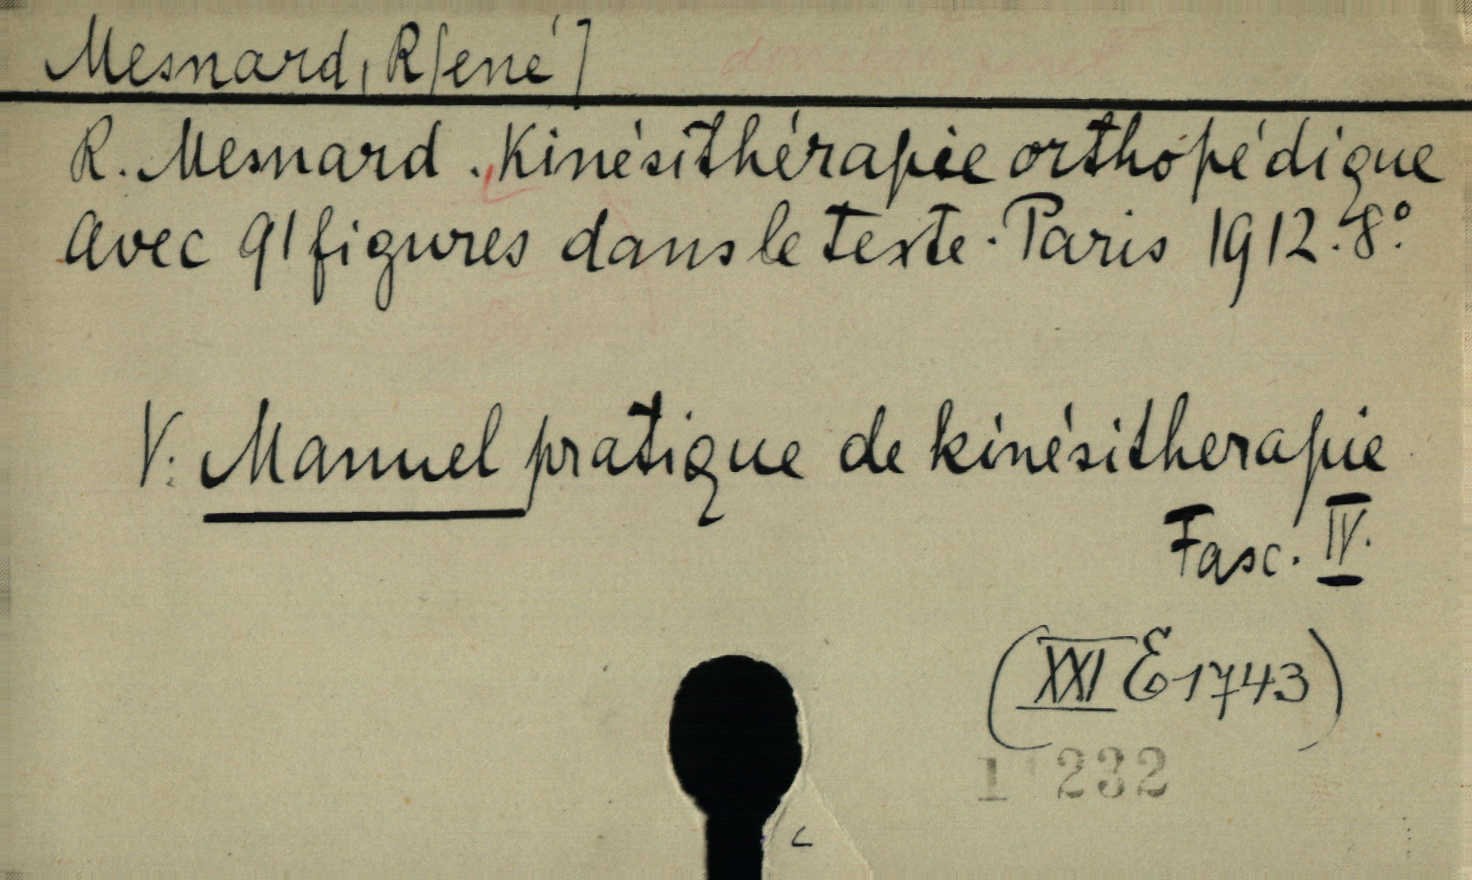 Mesnard, R[ené]
R. Mesnard. Kinésithérapie orthopédique
avec 91 figures dans le texte. Paris 1912. 8°.
V. Manuel pratique de kinésitherapie
Fasc. IV.
(XXI E 1743)
1 232